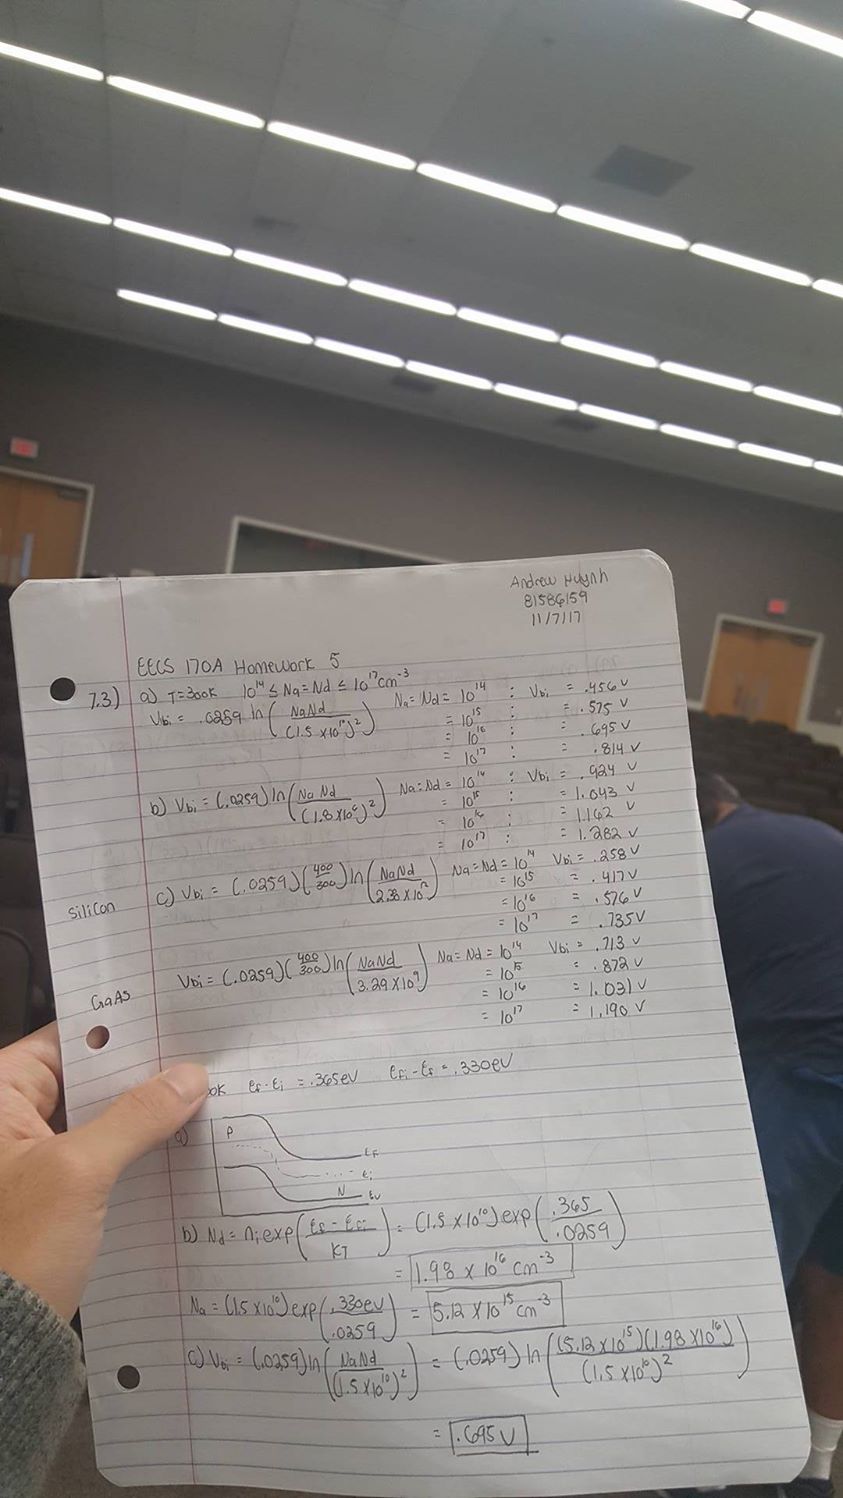 Andrew Huynh
81586159
11/7/17
EECS 170A Homework 5
7.3) a) T=300K 10^14 ≤ Na=Nd ≤ 10^17 cm^-3
Vbi = .0259 ln(NaNd/(1.5 x10^10)^2) Na=Nd = 10^14 : Vbi = .456 V
= 10^15 : = .575 V
= 10^16 : = .695 V
= 10^17 : = .814 V
b) Vbi = (.0259) ln(Na Nd/(1.8 x10^6)^2) Na=Nd = 10^14 : Vbi = .924 V
= 10^15 : = 1.043 V
= 10^16 = 1.162 V
= 10^17 : = 1.282 V
Silicon c) Vbi = (.0259)(400/300) ln(NaNd/2.38 x10^12) Na=Nd = 10^14 Vbi = .258 V
= 10^15 = .417 V
= 10^16 = .576 V
= 10^17 = .735 V
GaAs Vbi = (.0259)(400/300) ln(NaNd/3.29 x10^9) Na=Nd = 10^14 Vbi = .713 V
= 10^15 = .872 V
= 10^16 = 1.031 V
= 10^17 = 1.190 V
0K Ef-Ei = .365eV Efi-Ef = .330eV
a)
P
EF
Ei
N Ev
b) Nd = ni exp((Ef - Efi)/KT) = (1.5 x10^10) exp(.365/.0259)
= 1.98 x 10^16 cm^-3
Na = (1.5 x10^10) exp(.330eV/.0259) = 5.12 x 10^15 cm^-3
c) Vbi = (.0259) ln(NaNd/(1.5 x10^10)^2) = (.0259) ln((5.12 x10^15)(1.98 x10^16)/(1.5 x10^10)^2)
= .695 V